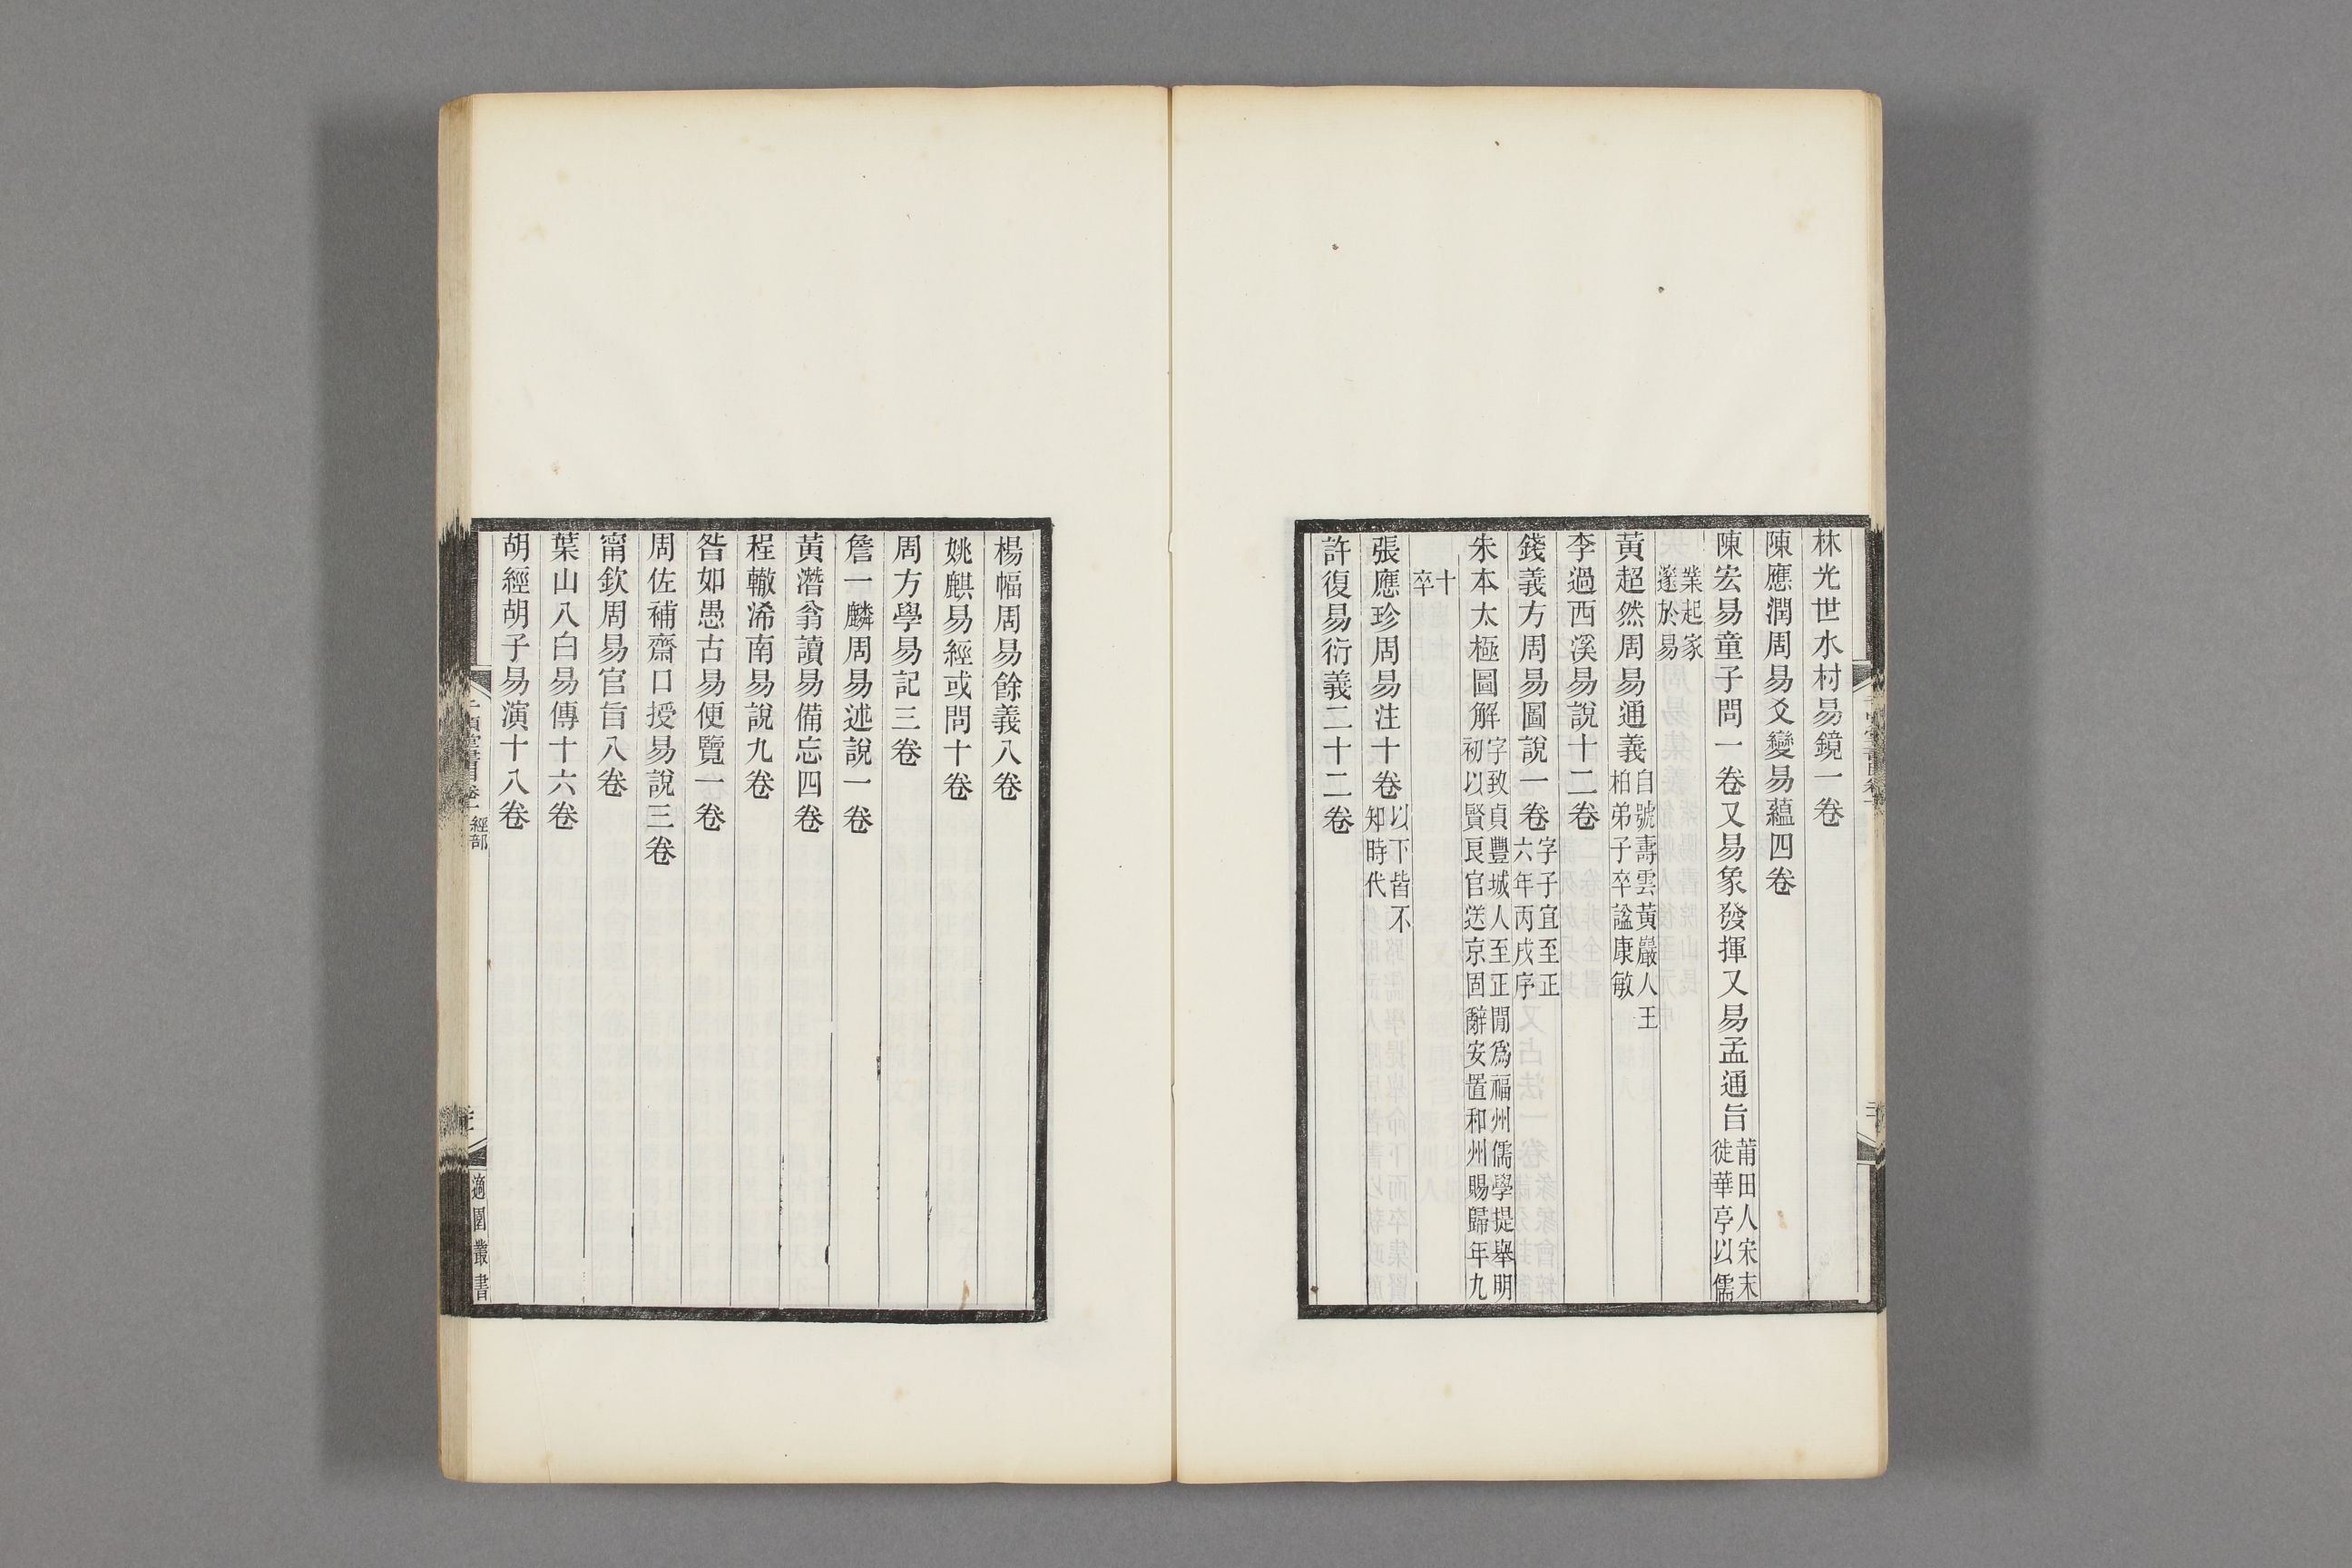 林光世水村易鏡一卷
陳應潤周易爻變易蘊四卷
陳宏易童子問一卷又易象發揮又易孟通旨莆田人宋末徙華亭以儒
業起家邃於易
黃超然周易通義自號壽雲黃巖人王柏弟子卒謚康敏
李過西溪易說十二卷
錢義方周易圖說一卷字子宜至正六年丙戌序
朱本太極圖解字致貞豐城人至正閒為福州儒學提舉明初以賢良官送京固辭安置和州賜歸年九
十卒
張應珍周易注十卷以下皆不知時代
許復易衍義二十二卷
楊幅周易餘義八卷
姚麒易經或問十卷
周方學易記三卷
詹一麟周易述說一卷
黃潛翁讀易備忘四卷
程轍浠南易說九卷
昝如愚古易便覽一卷
周佐補齋口授易說三卷
甯欽周易官旨八卷
葉山八白易傳十六卷
胡經胡子易演十八卷
千頃堂書目卷一 經部
適園叢書